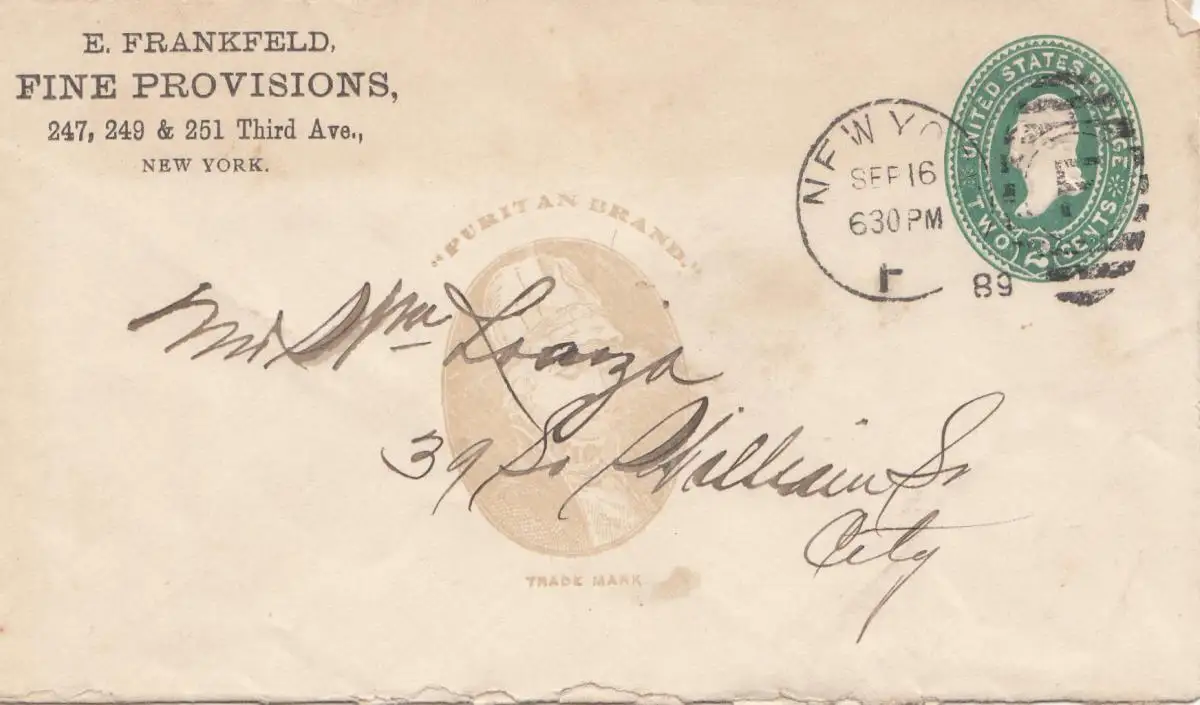 E. FRANKFELD,
FINE PROVISIONS,
247, 249 & 251 Third Ave.,
NEW YORK.
NEW YO
SEP 16
630 PM
F
89
UNITED STATES POSTAGE
TWO CENTS
2
"PURITAN BRAND."
Wm
39 So William St
City
TRADE MARK